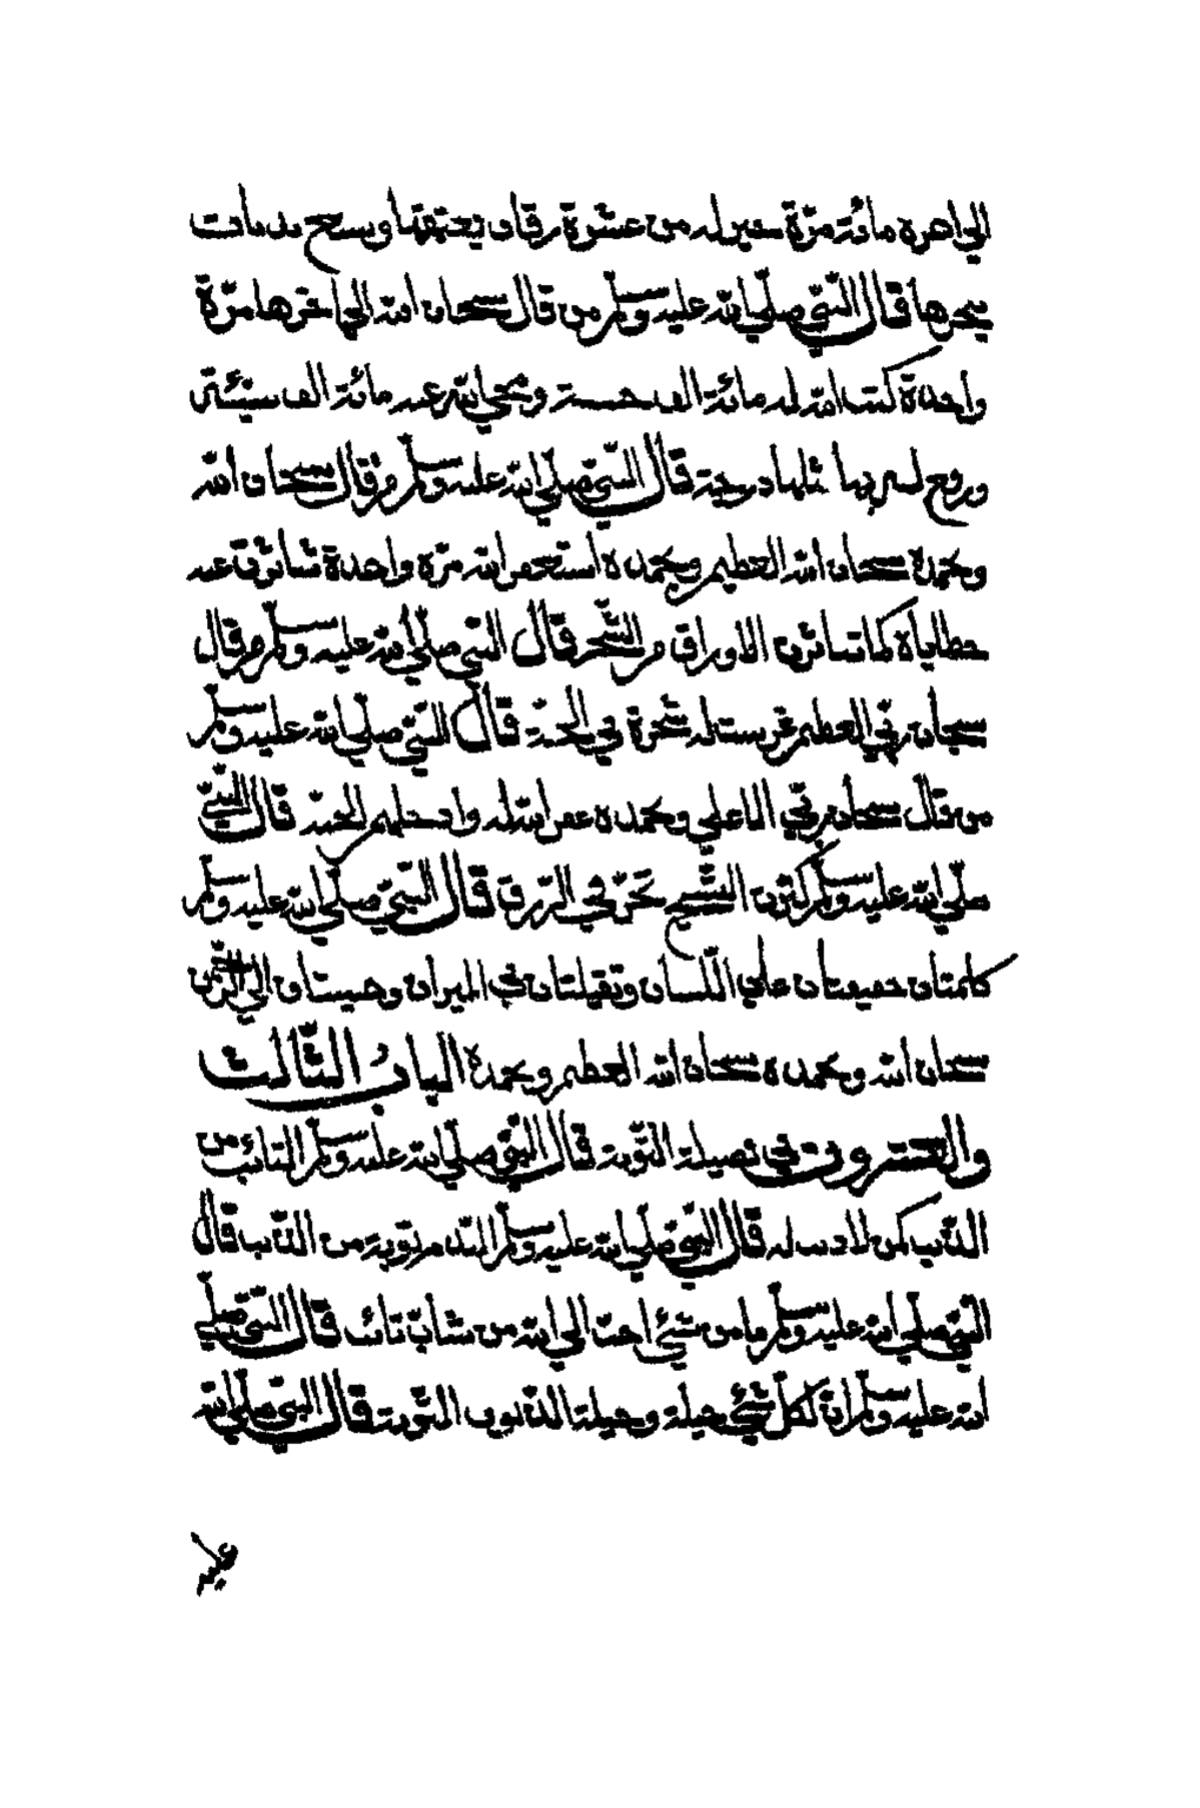 الي اخره مائة مرّة خير له من عشرة رقاب يعتقها ويسبح بدنات
ينحرها قال النّبيّ صلّي الله عليه وسلّم من قال سبحان الله الي اخرها مرّة
واحدة كتب الله له مائة الف حسنة ومحي الله عنه مائة الف سيّئة
ورفع له بها مثلها درجة قال النّبيّ صلّي الله عليه وسلّم من قال سبحان الله
وبحمده سبحان الله العظيم وبحمده استغفر الله مرّة واحدة تناثرت عنه
خطاياه كما تناثرت الاوراق من الشّجر قال النّبيّ صلّي الله عليه وسلّم من قال
سبحان ربّي العظيم غرست له شجرة في الجنّة قال النّبيّ صلّي الله عليه وسلّم
من قال سبحان ربّي الاعلي وبحمده غفر الله له وادخله الجنّة قال النّبيّ
صلّي الله عليه وسلّم كثرة التّسبيح تجرّ في الرّزق قال النّبيّ صلّي الله عليه وسلّم
كلمتان خفيفتان علي اللّسان وثقيلتان في الميزان وحبيبتان الي الرّحمن
سبحان الله وبحمده سبحان الله العظيم وبحمده الباب الثّالث
والعشرون في فضيلة التّوبة قال النّبيّ صلّي الله عليه وسلّم التائب من
الذّنب كمن لا ذنب له قال النّبيّ صلّي الله عليه وسلّم النّدم توبة من الذّنب قال
النّبيّ صلّي الله عليه وسلّم ما من شئ احبّ الي الله من شابّ تائب قال النّبيّ صلّي
الله عليه وسلّم انّ لكلّ شئ حيلة وحيلة الذّنوب التّوبة قال النّبيّ صلّي الله
عليه